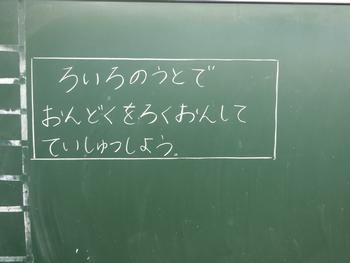 ろいろのうとで
おんどくをろくおんして
ていしゅつしよう。